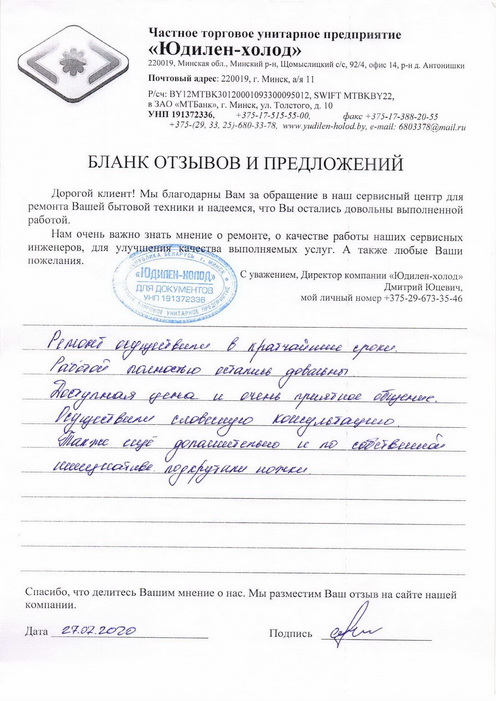 Частное торговое унитарное предприятие
«Юдилен-холод»
220019, Минская обл., Минский р-н, Щомыслицкий с/с, 92/4, офис 14, р-н д. Антонишки
Почтовый адрес: 220019, г. Минск, а/я 11
Р/сч: BY12MTBK30120001093300095012, SWIFT MTBKBY22,
в ЗАО «МТБанк», г. Минск, ул. Толстого, д. 10
УНП 191372336, +375-17-515-55-00, факс +375-17-388-20-55
+375-(29, 33, 25)-680-33-78, www.yudilen-holod.by, e-mail: 6803378@mail.ru
БЛАНК ОТЗЫВОВ И ПРЕДЛОЖЕНИЙ
Дорогой клиент! Мы благодарны Вам за обращение в наш сервисный центр для
ремонта Вашей бытовой техники и надеемся, что Вы остались довольны выполненной
работой.
Нам очень важно знать мнение о ремонте, о качестве работы наших сервисных
инженеров, для улучшения качества выполняемых услуг. А также любые Ваши
пожелания.
«ЮДИЛЕН-ХОЛОД»
ДЛЯ ДОКУМЕНТОВ
УНП 191372336
С уважением, Директор компании «Юдилен-холод»
Дмитрий Юцевич,
мой личный номер +375-29-673-35-46
Ремонт осуществили в кратчайшие сроки.
Работой полностью остались довольны.
Доступная цена и очень приятное общение.
Осуществили словесную консультацию.
Также ещё дополнительно и по собственной
инициативе подкрутили ножки.
Спасибо, что делитесь Вашим мнение о нас. Мы разместим Ваш отзыв на сайте нашей
компании.
Дата 27.02.2020 Подпись